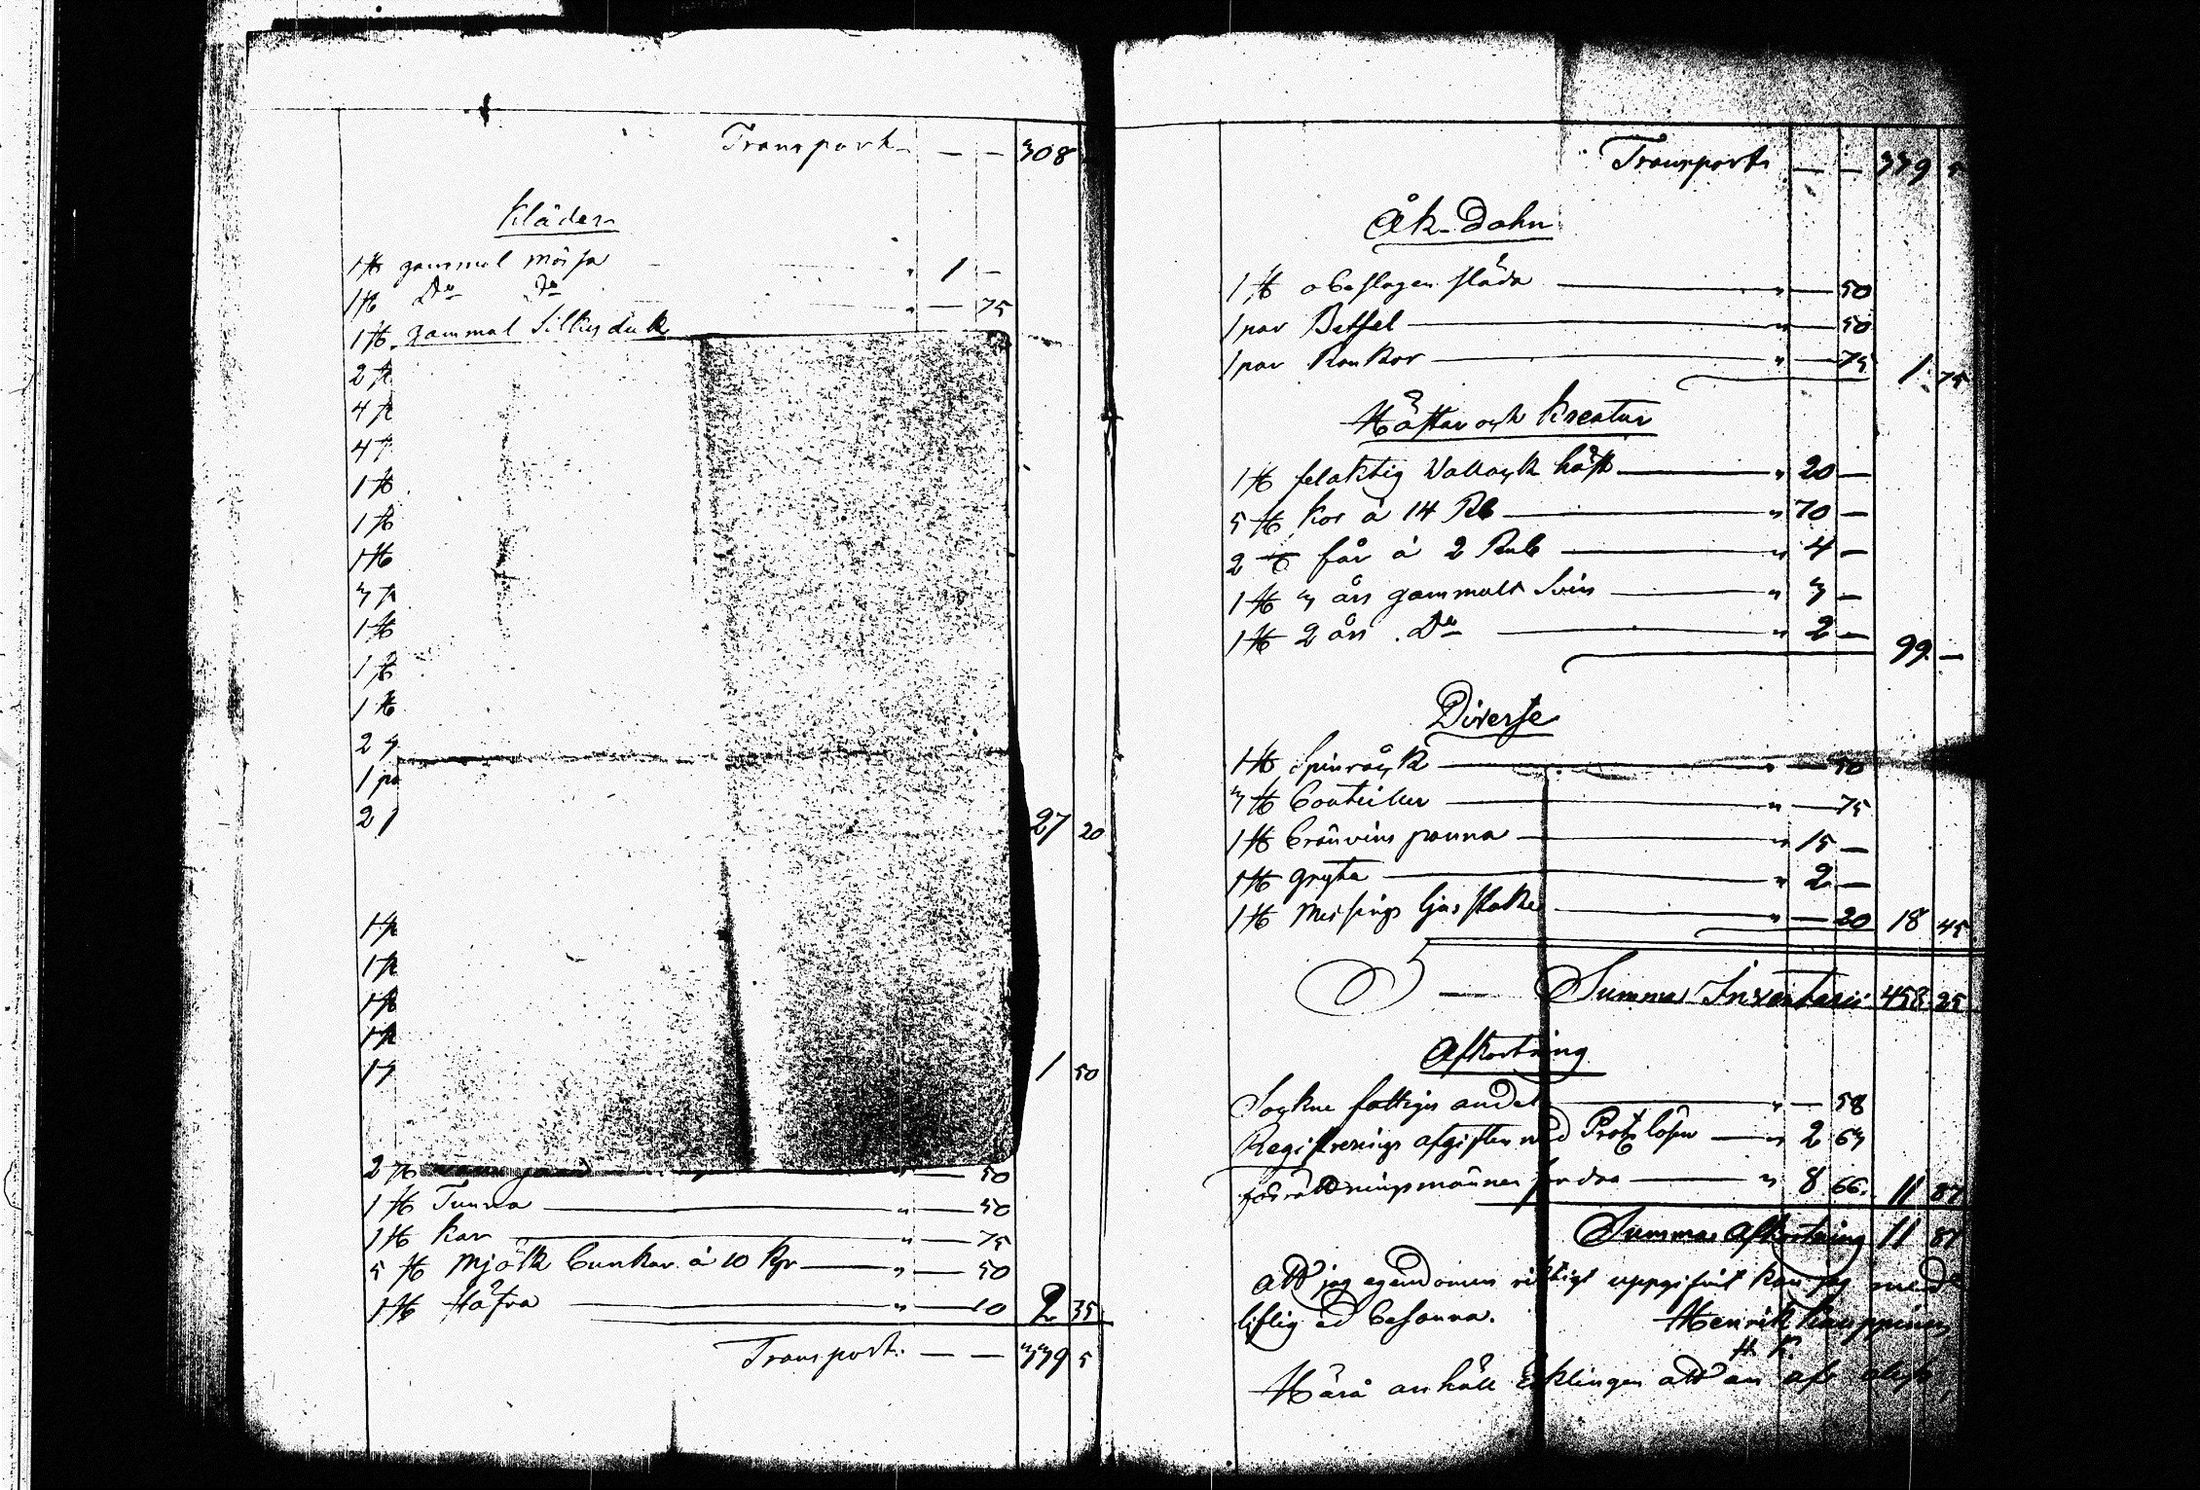 Transport — — 308
Kläder
1 st gammal mössa " 1 —
1 st Do Do " — 75
1 st gammal Silkesduk
2 st
4 st
4
1 st
1 st
1 st
3 st
1 st
1 st
1 st
2
1 pa
2
27 20
1 st
1 st
1 st
1 st
1
1 50
2 st " — 50
1 st Tunna " — 50
1 st Kar " — 75
5 st Mjölk bunkar à 10 Kpr " — 50
1 st Håfva " — 10 2 35
Transport — — 339 5
Transport — — 339 5
Åk-Dohn
1 st obeslagen släda " — 50
1 par Betsel " — 50
1 par Rankor " — 75 1 75
Hästar och Kreatur
1 st felaktig Wallack häst " 20 —
5 st Kor à 14 Rb " 70 —
2 st får à 2 Rub " 4 —
1 st 3 års gammalt Svin " 3 —
1 st 2 års Do " 2 — 99 —
Diverse
1 st Spinråck " — 50
3 st bouteiller " — 75
1 st bränvins panna " 15 —
1 st gryta " 2 —
1 st messings ljusstake " — 20 18 45
Summa Inventarii 458 25
Afkortning
Sockne fattiges andel " — 58
Registrerings afgiften med Protx lösen " 2 63
förrättningsmännens fordran " 8 66 11 87
Summa Afkortning 11 87
Att jag egendomen riktigt uppgifvit kan jag med
liflig ed besanna. Henrik Kauppinen
H. K.
Härå anhåll Encklingen att än af